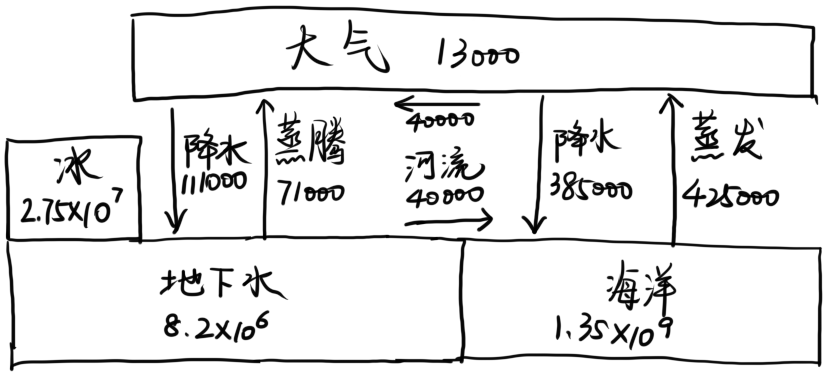 大气 13000
冰
2.75×10⁷
降水
111000
蒸腾
71000
40000
河流
40000
降水
385000
蒸发
425000
地下水
8.2×10⁶
海洋
1.35×10⁹